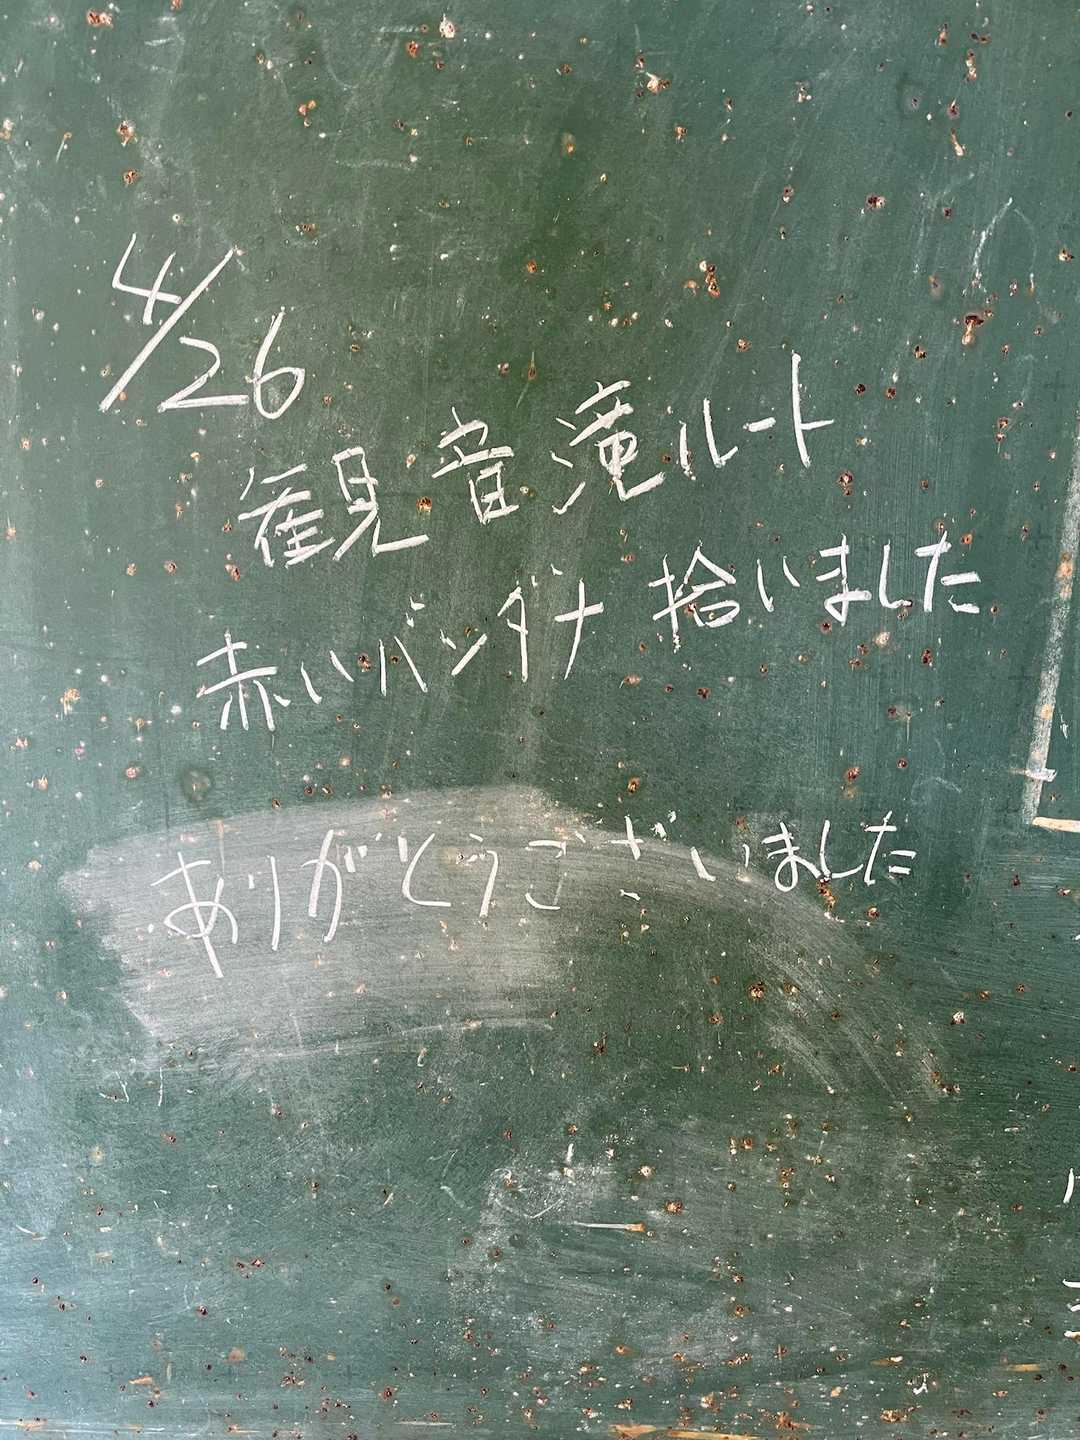 4/26
観音滝ルート
赤いバンダナ 拾いました
ありがとうございました